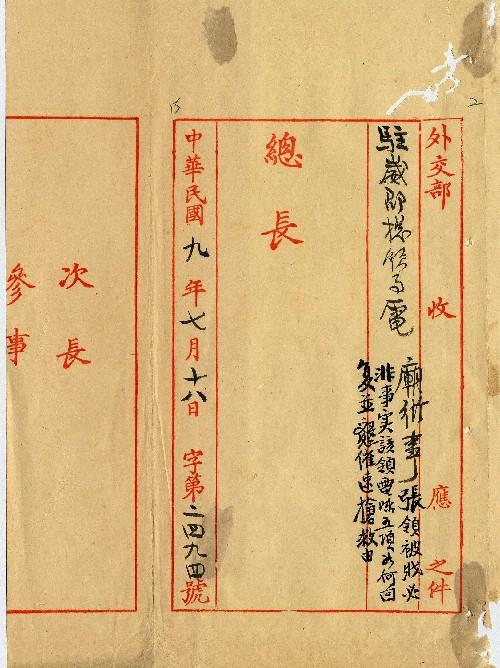 外交部收應之件
駐崴邵總領事電
廟街事張領被戕必
非事实該領電陳五項如何回
复並懇催速搶救由
總長
中華民國九年七月十八日字第二四九四號
次長
參事